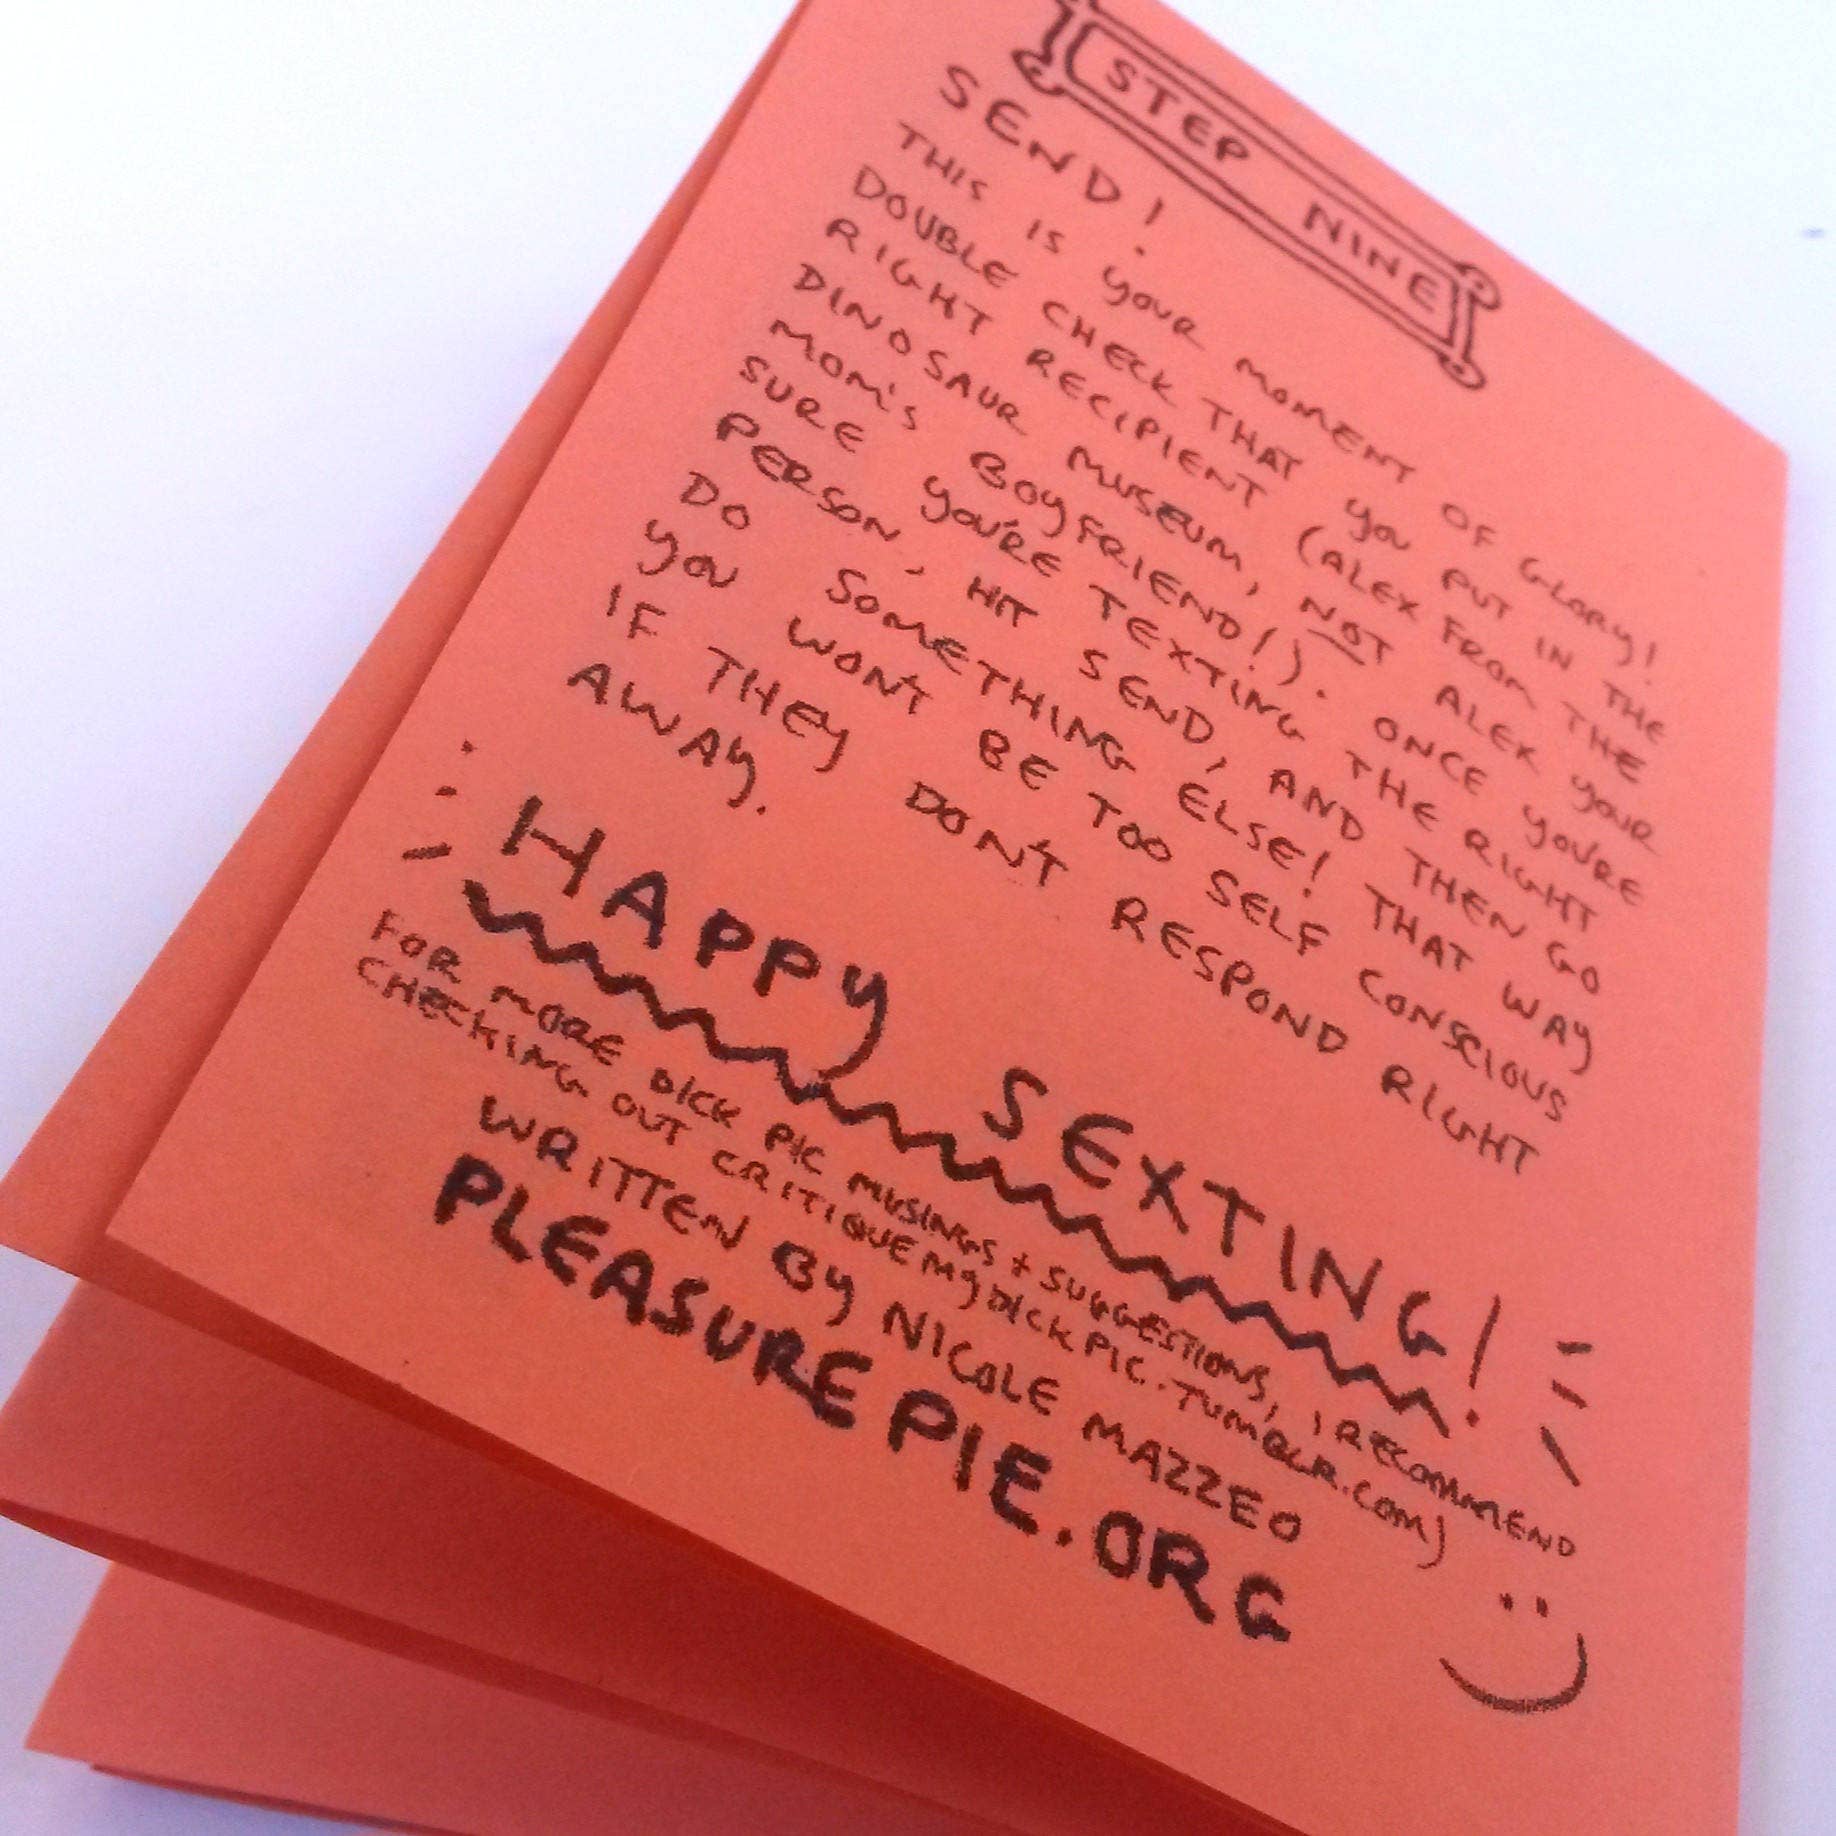 STEP NINE
SEND!
THIS IS YOUR MOMENT OF GLORY!
DOUBLE CHECK THAT YOU PUT IN THE
RIGHT RECIPIENT (ALEX FROM THE
DINOSAUR MUSEUM, NOT ALEX YOUR
MOM'S BOYFRIEND!). ONCE YOU'RE
SURE YOU'RE TEXTING THE RIGHT
PERSON, HIT SEND, AND THEN GO
DO SOMETHING ELSE! THAT WAY
YOU WON'T BE TOO SELF CONSCIOUS
IF THEY DON'T RESPOND RIGHT
AWAY.
HAPPY SEXTING!
FOR MORE DICK PIC MUSINGS + SUGGESTIONS, I RECOMMEND
CHECKING OUT CRITIQUEMYDICKPIC.TUMBLR.COM)
WRITTEN BY NICOLE MAZZEO
PLEASUREPIE.ORG